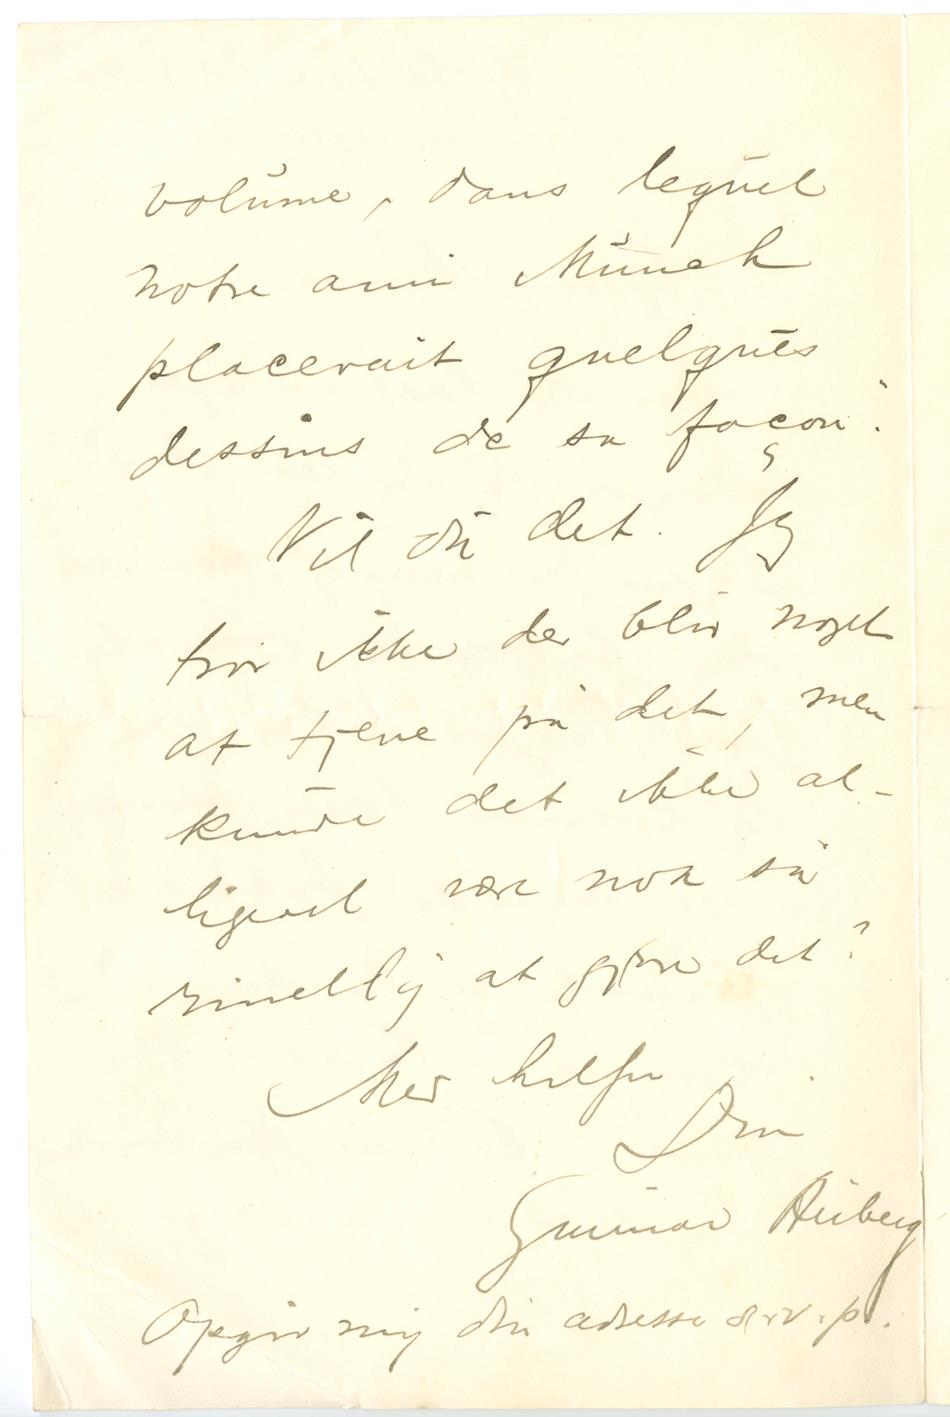 volume, dans lequel
notre ami Munch
placerait quelques
dessins de sa façon."
Vil du det. Jeg
tror ikke der blir noget
at tjene på det, men
kunde det ikke al-
ligevel være nok så
rimellig at gjøre det?
Med hilsen
Din
Gunnar Heiberg
Opgiv mig din adresse s. v. p.